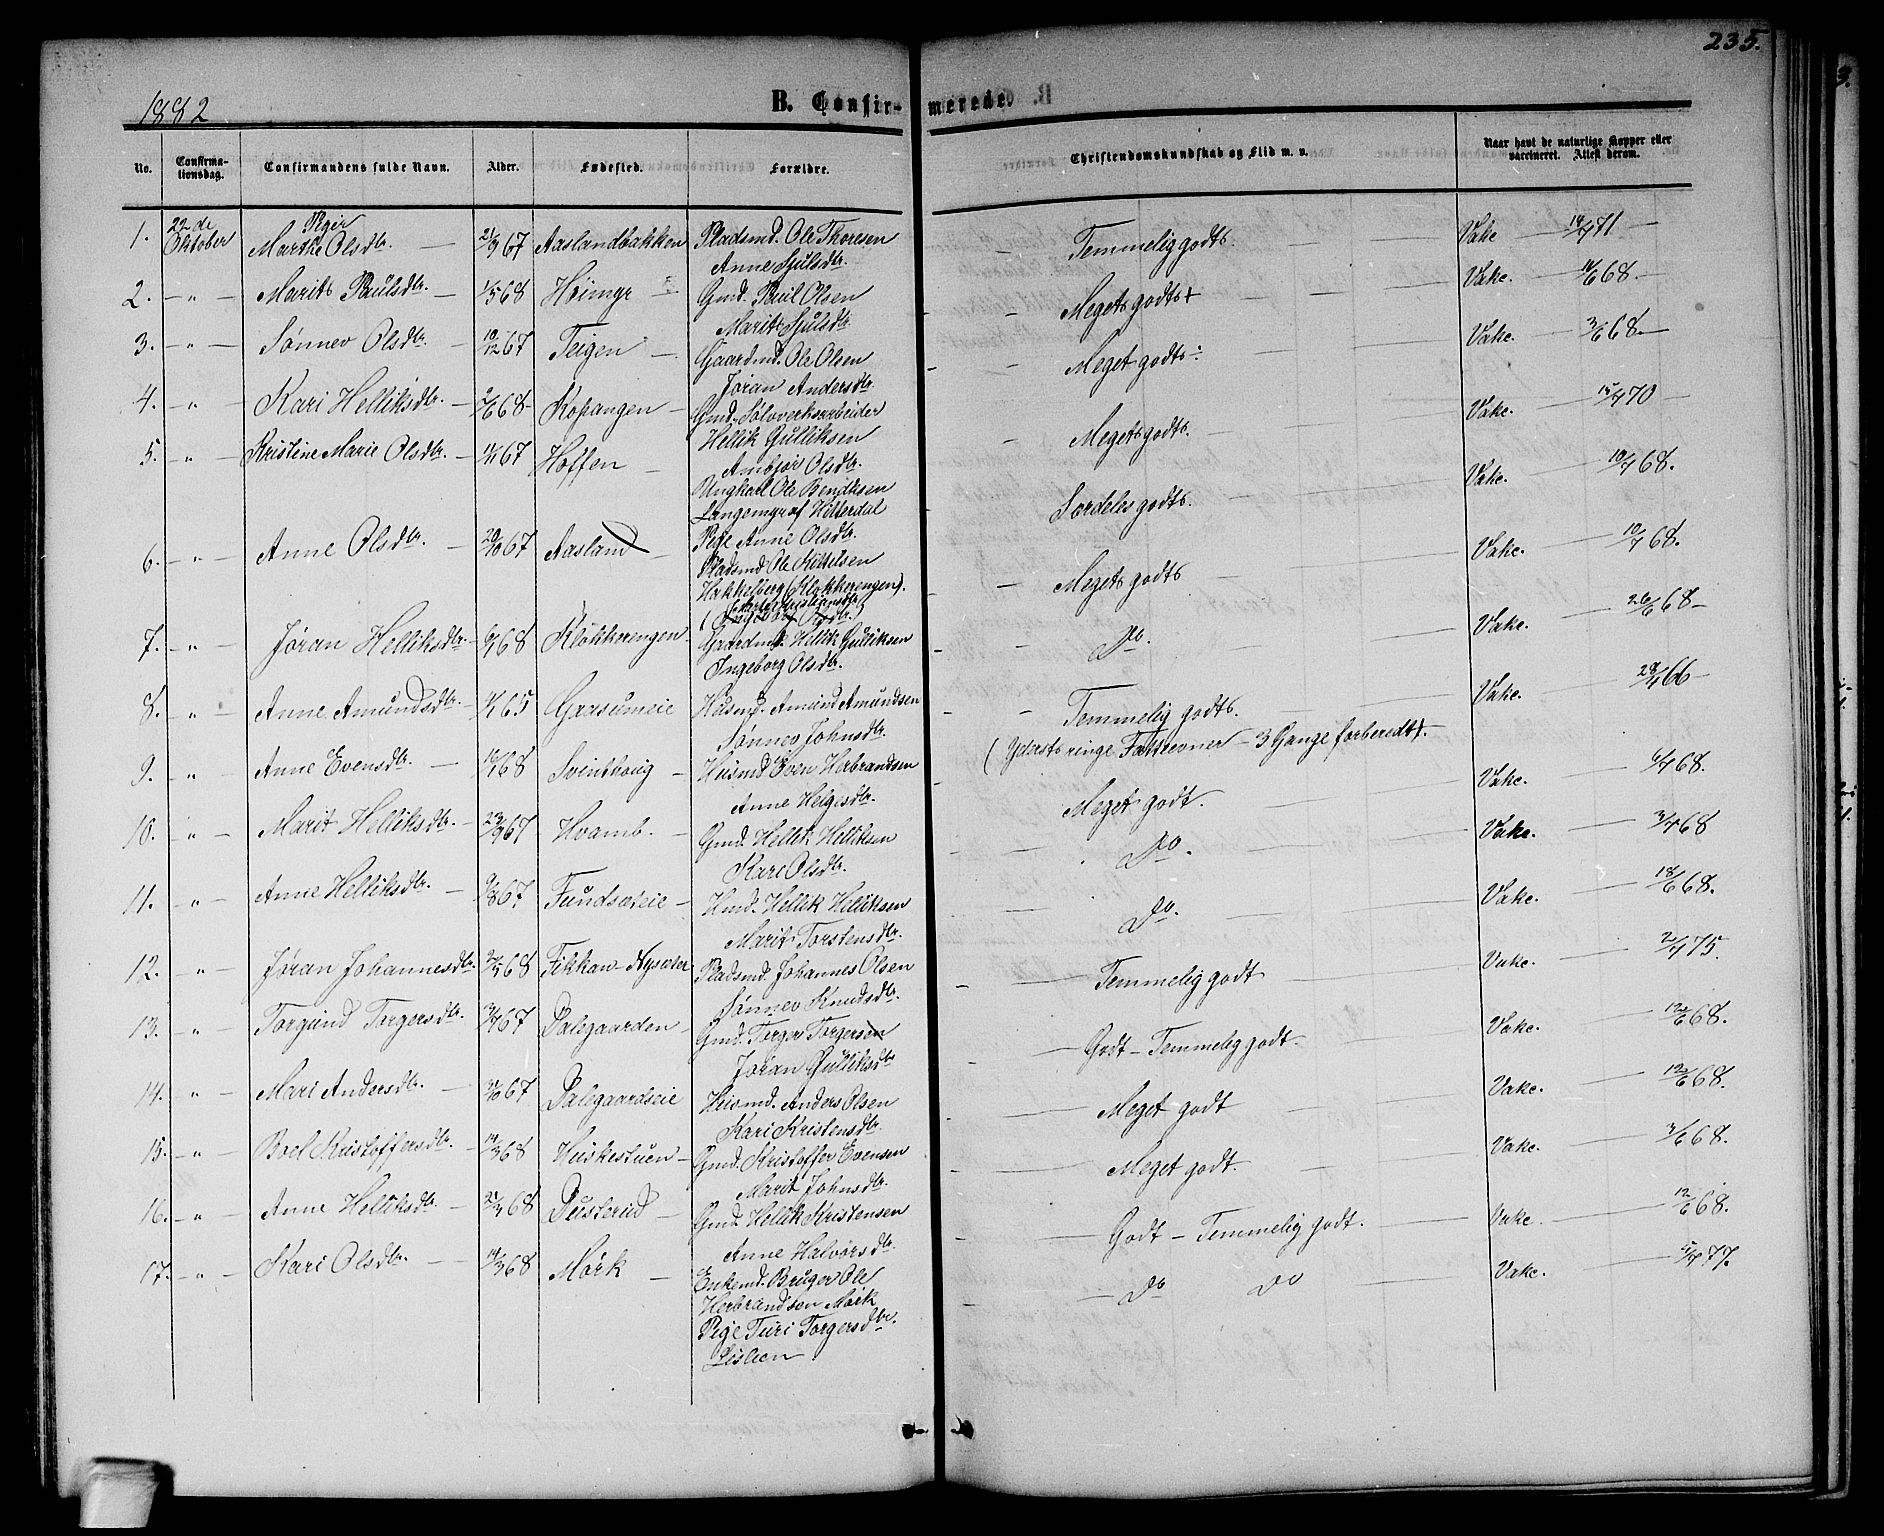 235.
1882 B. Confirmerede
No. Confirmationsdag. Confirmandens fulde Navn. Alder. Fødested. Forældre. Christendomskundskab og Flid m. v. Naar havt de naturlige Kopper eller vaccineret. Attest derom.
Piger
1. 22de Oktober Marthe Olsdtr. — 2/9 67 Aaslandbakken Pladsmd. Ole Thoresen Anne Sjulsdtr. — Temmelig godt. Vakc 71 —
2. — " — Marit Paulsdtr. — 1/5 68 Høimyr — Gmd. Paul Olsen Marit Sjulsdtr — Meget godt + — Vakc. — 68. —
3. — " — Sønnev Olsdtr. — 10/12 67 Teigen — Gaardmd. Ole Olsen Jøran Andersdtr. — Meget godt ÷ Vakc. — 3/6 68. —
4. — " — Kari Helliksdtr. — 2/6 68 Kopangen — Gmd. Sølvverksarbeider Hellik Gulliksen Ambjør Olsdtr. — Meget godt. Vakc. — 15/7 70 —
5. — " — Kristine Marie Olsdtr. — 67 Hoffen — Ungkarl Ole Bendiksen Langemyr af Hitterdal Pige Anne Olsdtr. Særdeles godt. Vakc. — 10/7 68.
6. " — Anne Olsdtr. — 20/10 67 Aasland Pladsmd Ole Kittelsen Hakkelberg (Klokkerengen). — Meget godt Vakc. — 10/7 68.
7. — " — Jøran Helliksdtr — 68 Klokkerengen — Gaardmd. Hellik Gulliksen Ingeborg Olsdtr. — Do. Vakc. — 26/6 68 —
8. — " — Anne Amundsdtr. — 65 Gaasumeie Husmd. Amund Amundsen Sønnev Johnsdtr. — Temmelig godt. Vakc. — 66 —
(Yderst ringe Fatteevner — 3 Gange forberedt).
9. " — Anne Evensdtr. — 68 Svinthoug — Husmd Even Herbrandsen Anne Helgesdtr. Meget godt. Vakc. — 6/7 68.
10. " — Marit Helliksdtr. — 23/9 67 Hvamb. — Gmd. Hellik Helliksen Kari Olsdtr. Do. Vakc. — 3/7 68
11. — " — Anne Helliksdtr. — 9/8 67 Fundsæteie — Hmd. Hellik Helliksen Marit Torstensdtr. Do. Vakc. — 18/6 68.
12. — " — Jøran Johannesdtr. 2/5 68 Fikkan Nysæter Pladsmd. Johannes Olsen Sønnev Knudsdtr. — Temmelig godt Vakc. — 2/7 75.
13. — " — Torgund Torgersdtr. 67 Dalegaarden — Gmd. Torger Torgersen Jøran Gulliksdtr — Godt — Temmelig godt. Vakc. — 12/6 68.
14. — " — Mari Andersdtr. — 67 Dalegaardseie Husmd. Anders Olsen Kari Kristensdtr. — Meget godt Vakc. — 12/6 68.
15. — " — Boel Kristoffersdtr. — 14/3 68 Huskestuen — Gmd. Kristoffer Evensen Marit Johnsdtr. — Meget godt. — Vakc. — 3/6 68.
16. — " — Anne Helliksdtr. — 68 Dusterud — Gmd. Hellik Kristensen Anne Halvorsdtr. Godt — Temmelig godt. Vakc. — 12/6 68.
17. — " — Kari Olsdtr. — 14/3 68 Mørk — Enkemd. Bruger Ole Herbrandsen Mørk Pige Turi Torgersdtr. — Do Do Vakc. — 77.